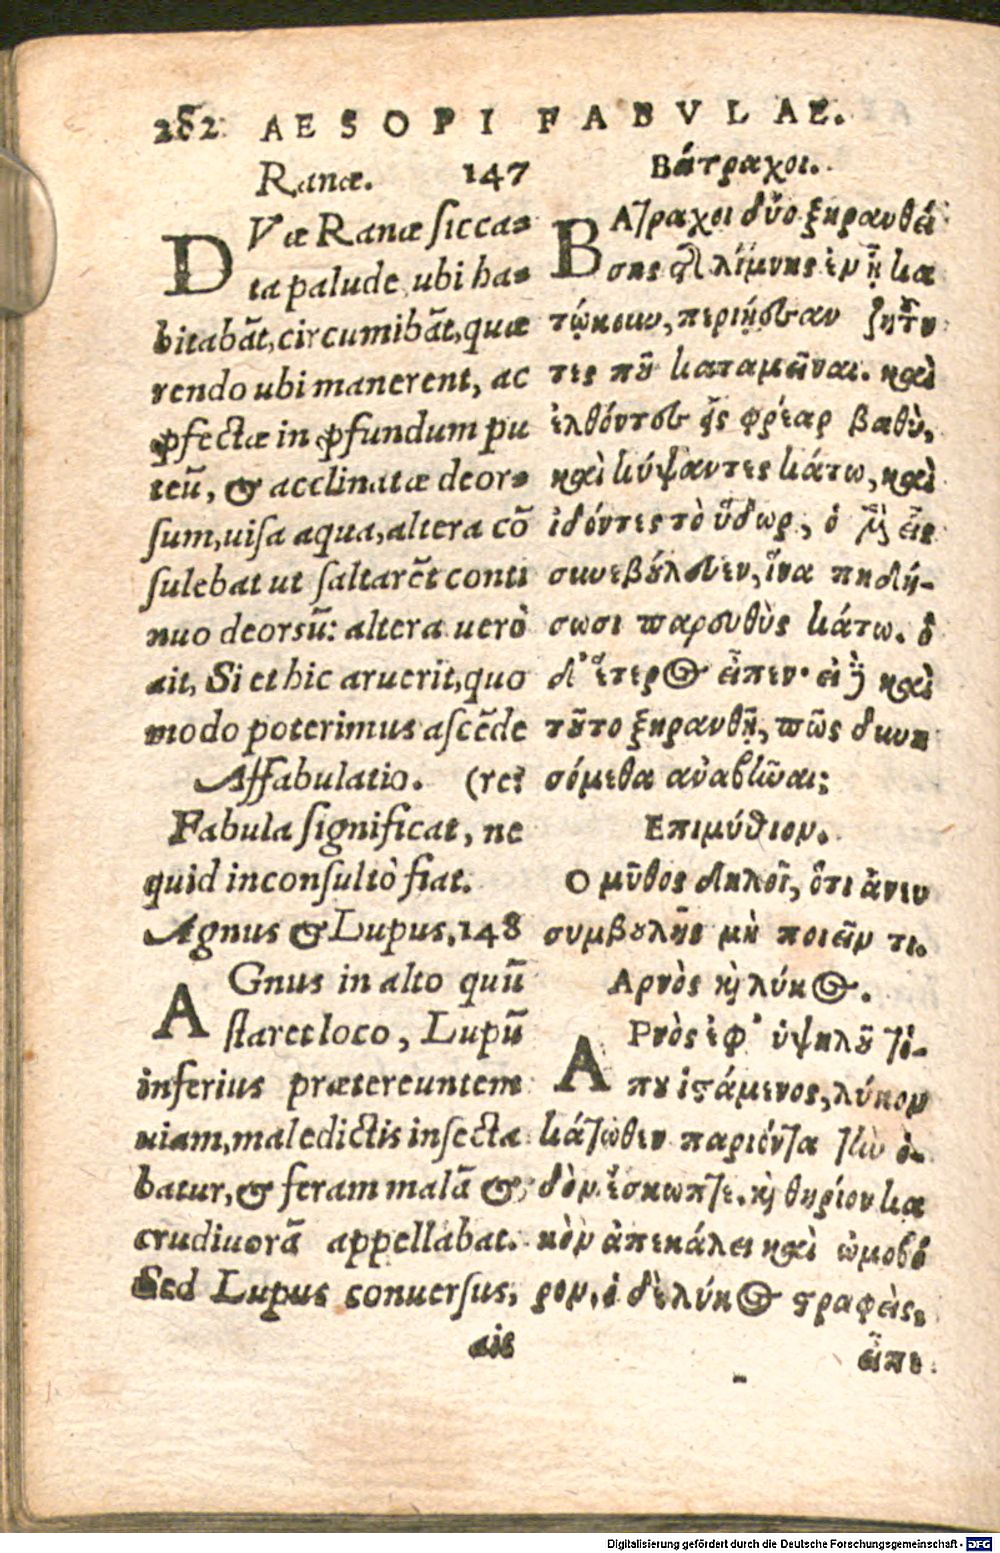 282 AESOPI FABVLAE.
Ranæ. 147
DVæ Ranæ ſicca-
ta palude ubi ha-
bitabãt, circumibãt, quæ
rendo ubi manerent, ac
ꝓfectæ in ꝓfundum pu
teũ, & acclinatæ deor-
sum, uiſa aqua, altera cõ
ſulebat ut ſaltarẽt conti
nuo deorsũ: altera uerò
ait, Si et hic aruerit, quo
modo poterimus aſcẽde
Affabulatio. (re?
Fabula ſignificat, ne
quid inconſultò fiat.
Agnus & Lupus. 148
AGnus in alto quũ
ſtaret loco, Lupũ
inferius prætereuntem
uiam, maledictis inſecta
batur, & feram malã &
crudiuorã appellabat.
Sed Lupus conuerſus,
ait
Βάτραχοι.
ΒΑτραχοι δύο ξηρανθεί
σης τῆς λίμνης ἐν ᾗ κα
τῴκουν, περιῄεσαν ζητοῦν
τες ποῦ καταμεῖναι. καὶ
ἐλθόντες εἰς φρέαρ βαθὺ,
καὶ κύψαντες κάτω, καὶ
ἰδόντες τὸ ὕδωρ, ὁ μὲν εἷς
συνεβούλευεν, ἵνα πηδή-
σωσι παρευθὺς κάτω. ὁ
δ' ἕτερος εἶπεν· εἰ δὲ καὶ
τοῦτο ξηρανθῇ, πῶς δυνη
σόμεθα ἀναβῆναι;
Επιμύθιον.
Ο μῦθος δηλοῖ, ὅτι ἄνευ
συμβουλῆς μὴ ποιεῖν τι.
Αρνὸς καὶ λύκος.
ΑΡνὸς ἐφ' ὑψηλοῦ τό-
που ἱστάμενος, λύκον
κάτωθεν παριόντα τὴν ὁ-
δὸν ἔσκωπτε. καὶ θηρίον κα
κὸν ἀπεκάλει καὶ ὠμοβό
ρον. ὁ δὲ λύκος στραφεὶς,
εἶπε.
Digitalisierung gefördert durch die Deutsche Forschungsgemeinschaft - DFG